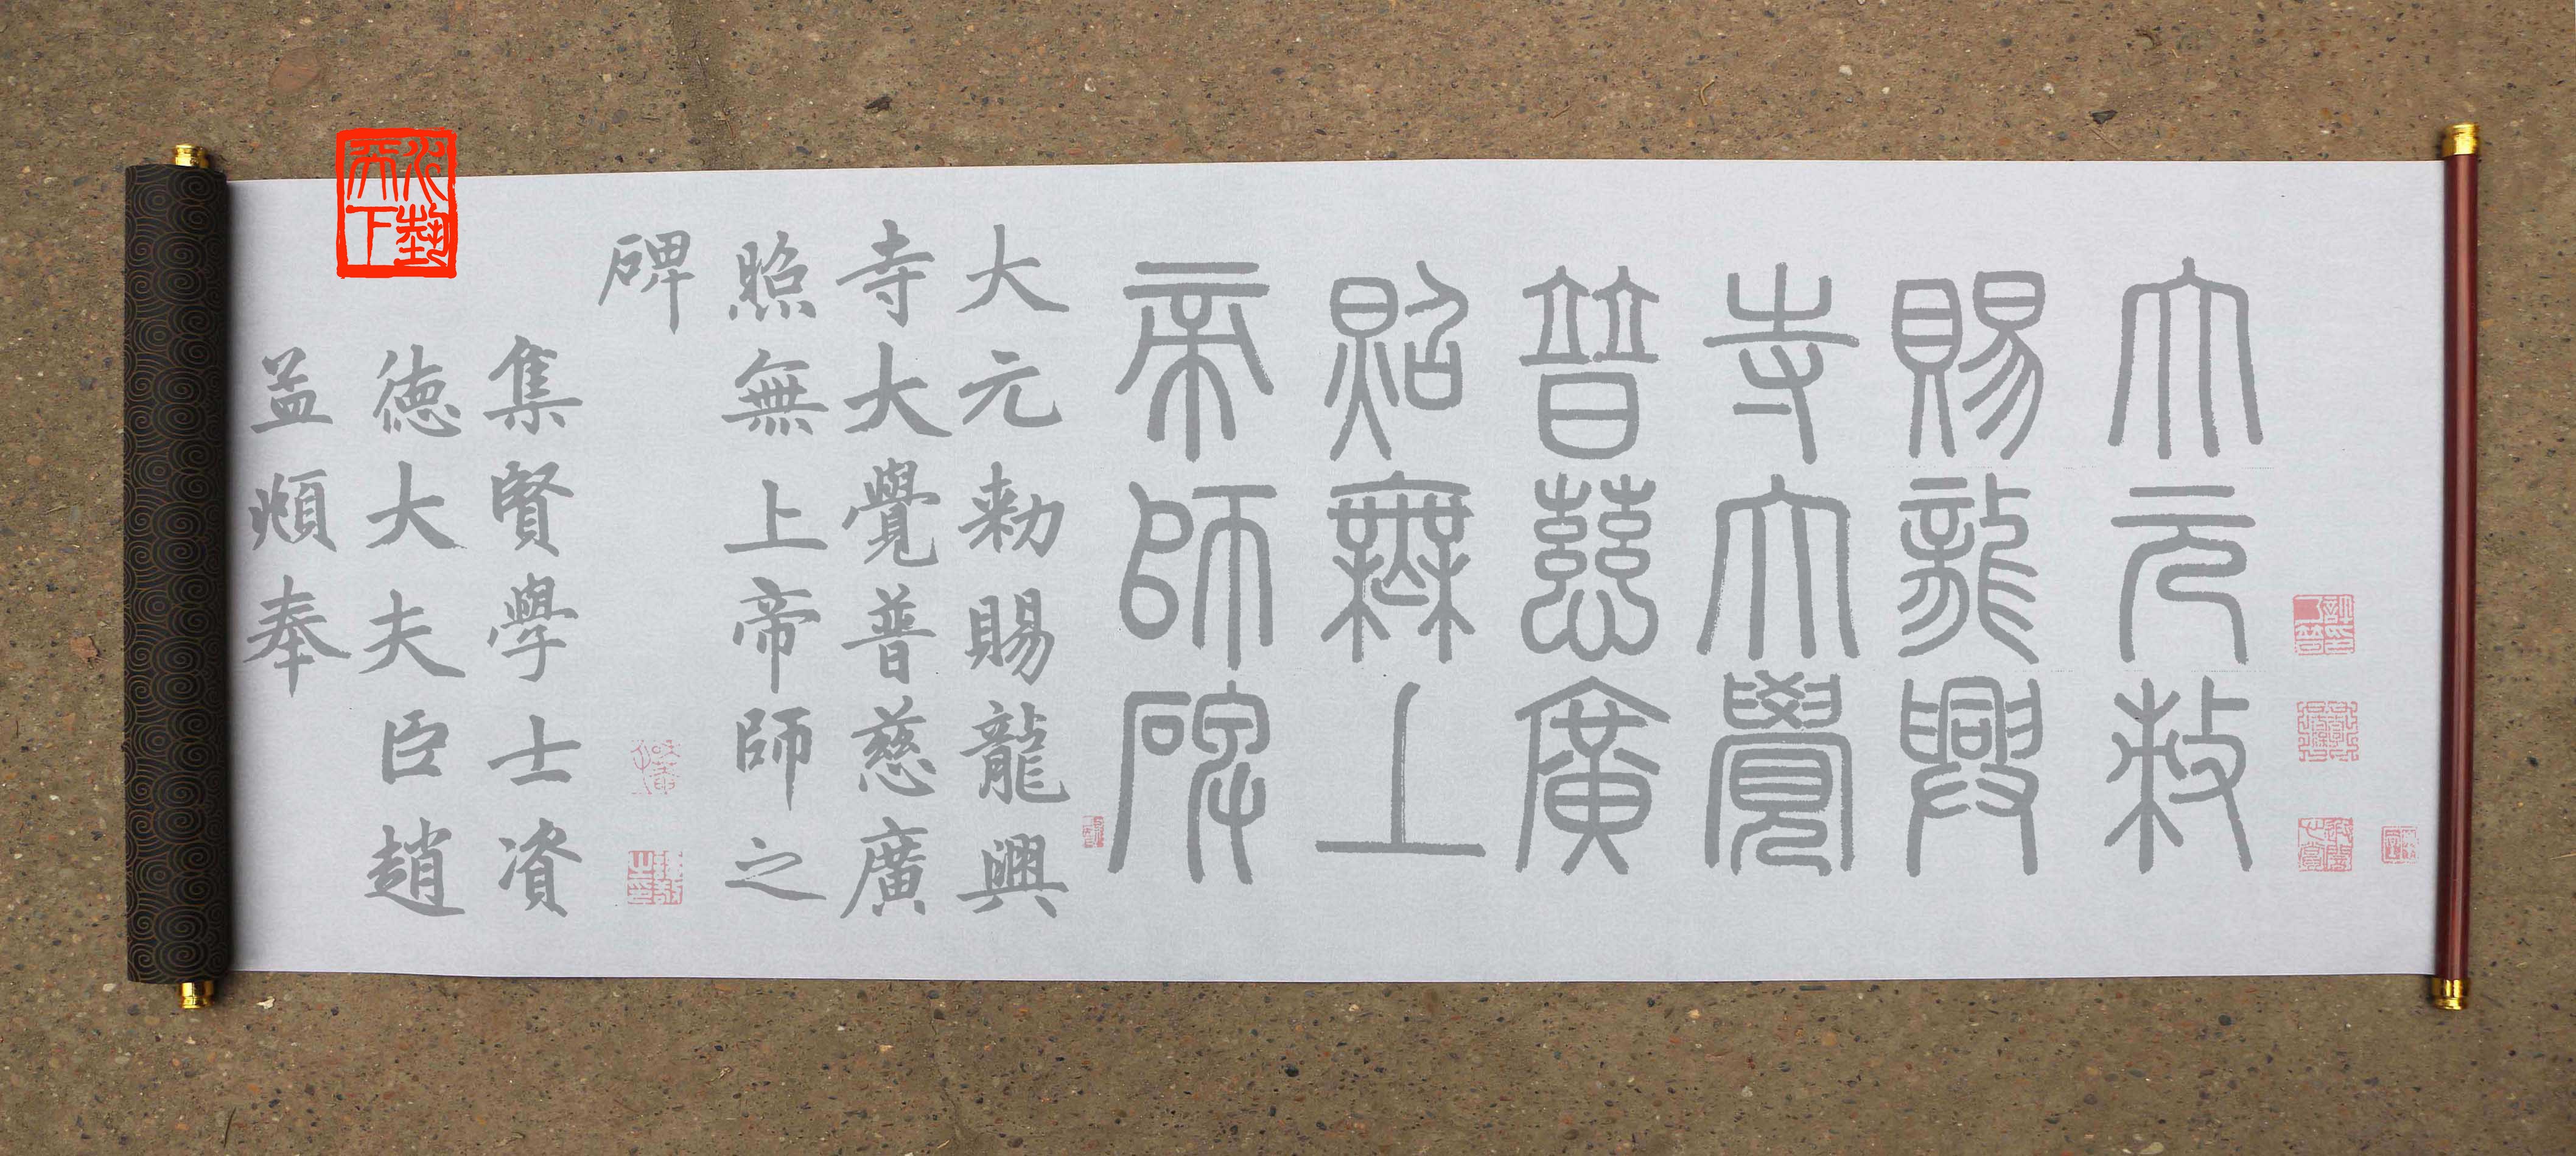 大元敕
賜龍興
寺大覺
普慈廣
照無上
帝師碑
大元勑賜龍興
寺大覺普慈廣
照無上帝師之
碑
集賢學士資
德大夫臣趙
孟頫奉